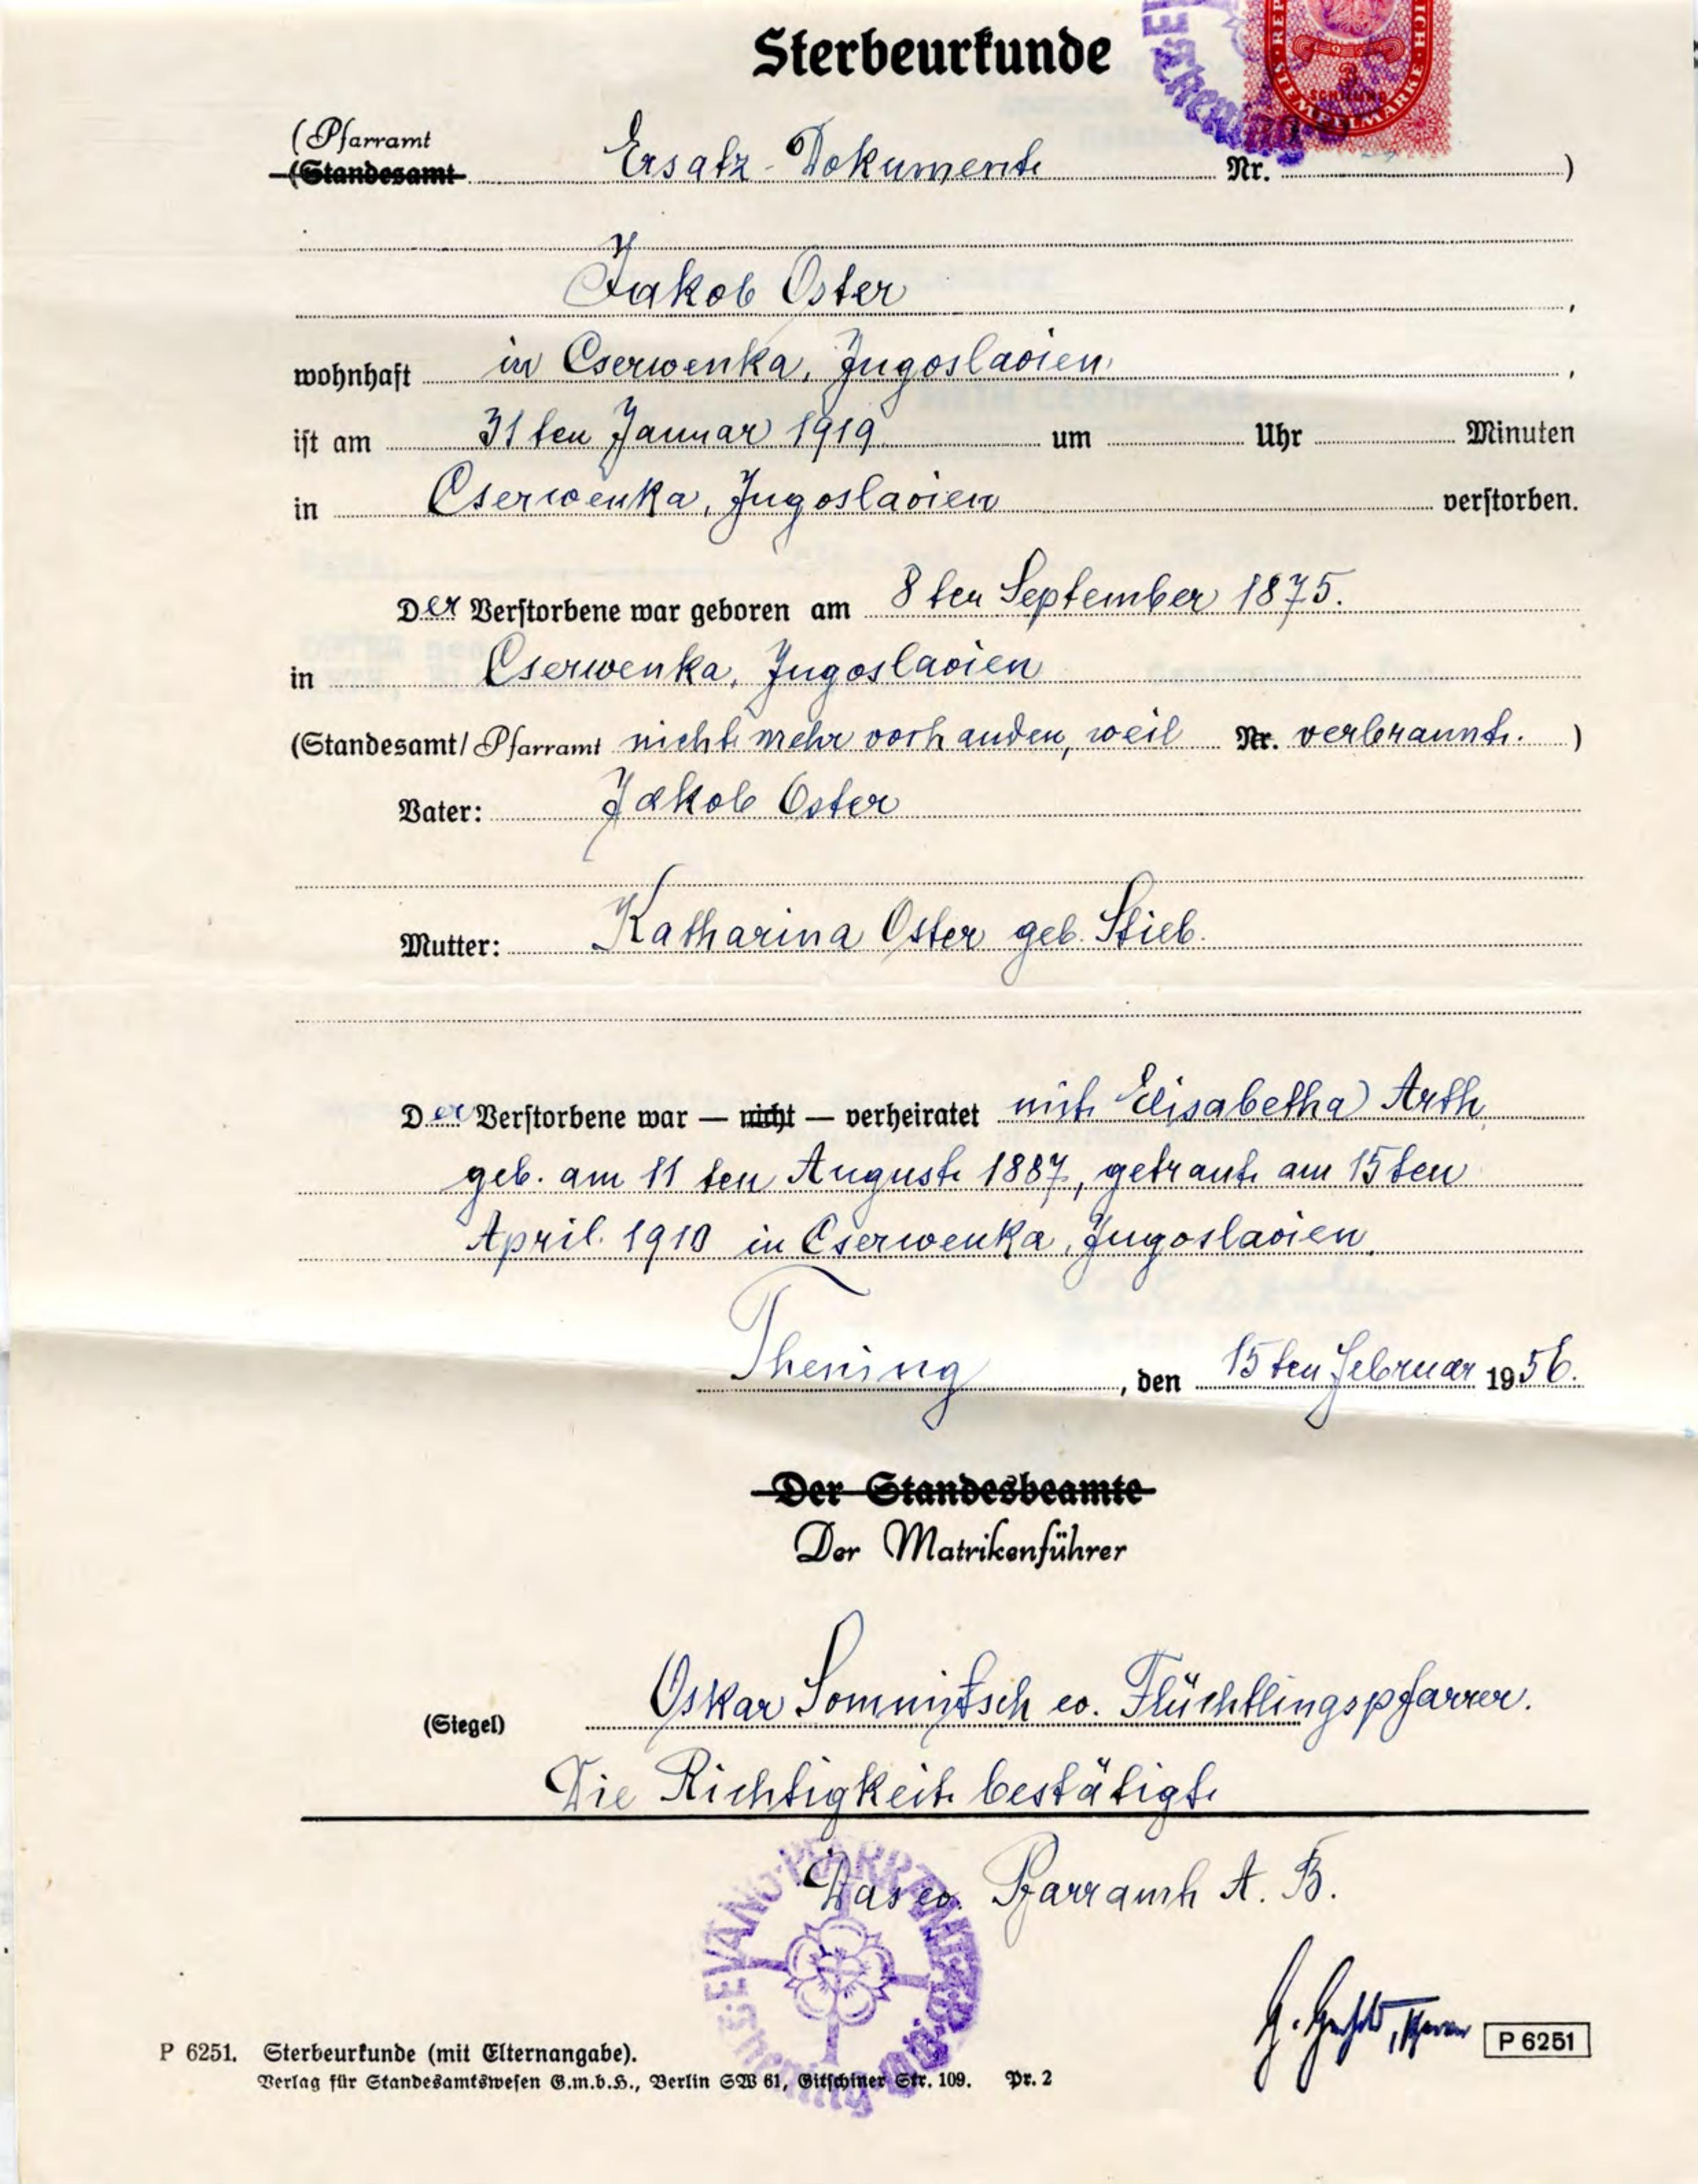 Sterbeurkunde
STEMPELMARKE
(Pfarramt
(Standesamt Ersatz-Dokumente Nr. )
Jakob Oster ,
wohnhaft in Cserwenka, Jugoslavien ,
ist am 31ten Januar 1919 um Uhr Minuten
in Cserwenka, Jugoslavien verstorben.
Der Verstorbene war geboren am 8ten September 1875.
in Cserwenka, Jugoslavien
(Standesamt/Pfarramt nicht mehr vorhanden, weil Nr. verbrannt. )
Vater: Jakob Oster
Mutter: Katharina Oster geb. Stieb.
Der Verstorbene war — nicht — verheiratet mit Elisabetha Arth,
geb. am 11ten August 1887, getraut am 15ten
April. 1910 in Cserwenka, Jugoslavien.
Thening , den 15ten Februar 1956.
Der Standesbeamte
Der Matrikenführer
(Siegel) Oskar Sommitsch ev. Flüchtlingspfarrer.
Die Richtigkeit bestätigt
Das ev. Pfarramt A. B.
EVANG. PFARRAMT A.B.
Thening
P 6251
P 6251. Sterbeurkunde (mit Elternangabe).
Verlag für Standesamtswesen G.m.b.H., Berlin SW 61, Gitschiner Str. 109. Pr. 2